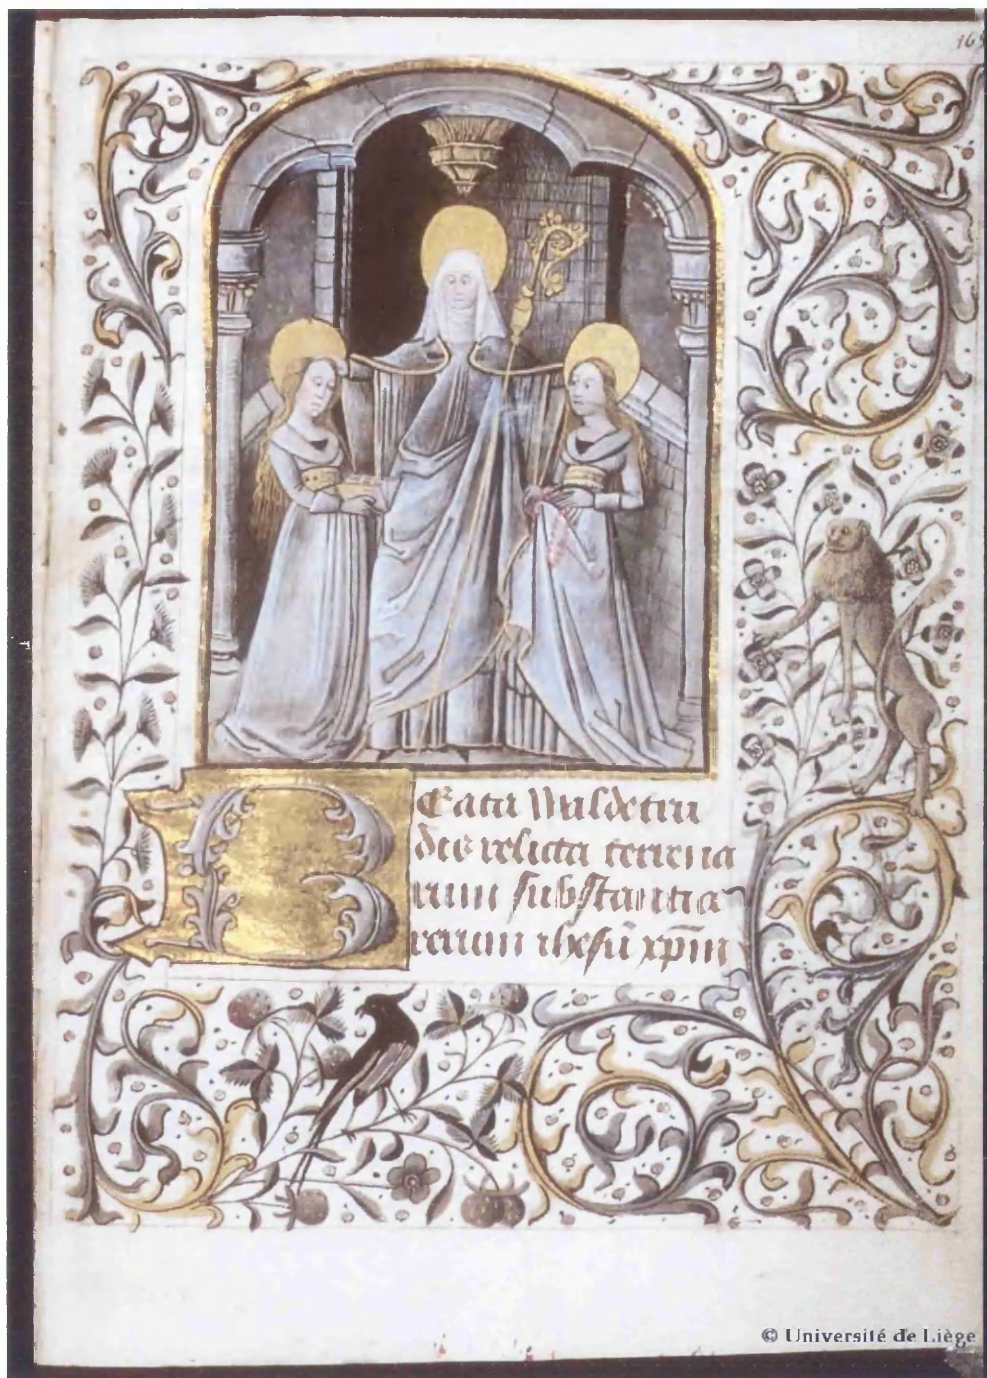 165
Beata Waldetru
dis relicta terrena
rum substantia
rerum ihesū xpm̄
© Université de Liège